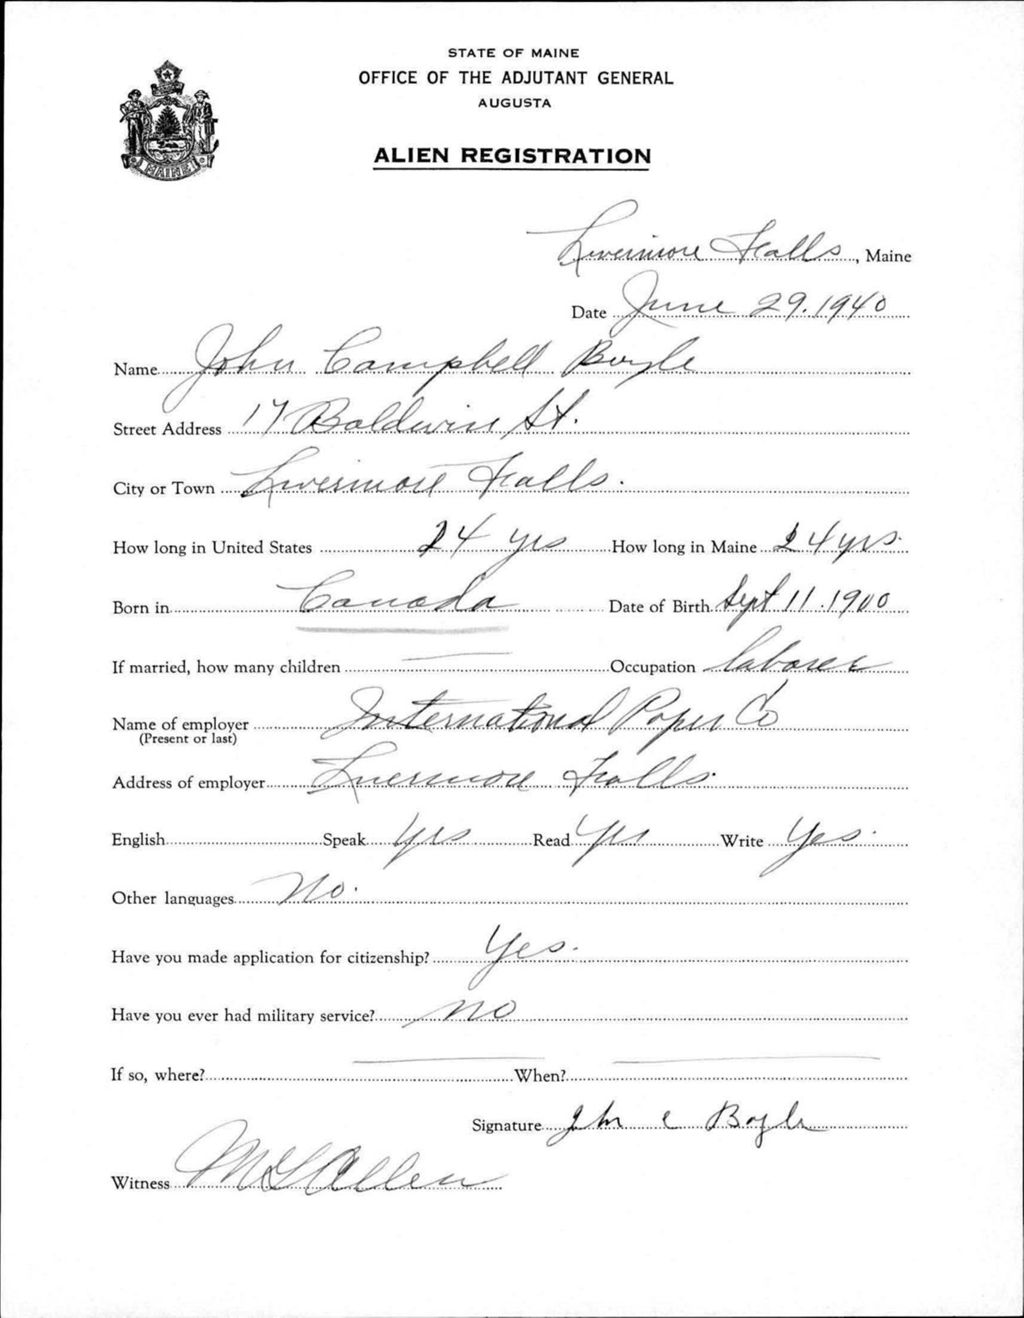 STATE OF MAINE
OFFICE OF THE ADJUTANT GENERAL
AUGUSTA
ALIEN REGISTRATION
MAINE
Livermore Falls, Maine
Date June 29. 1940
Name John Campbell Boyle
Street Address 17 Baldwin St.
City or Town Livermore Falls.
How long in United States 24 yrs How long in Maine 24 yrs.
Born in Canada Date of Birth Sept 11. 1900
If married, how many children — Occupation laborer
Name of employer International Paper Co
(Present or last)
Address of employer Livermore Falls.
English Speak yes Read Yes Write Yes.
Other languages No.
Have you made application for citizenship? Yes.
Have you ever had military service? no
If so, where? — When? —
Signature John C Boyle
Witness Allen